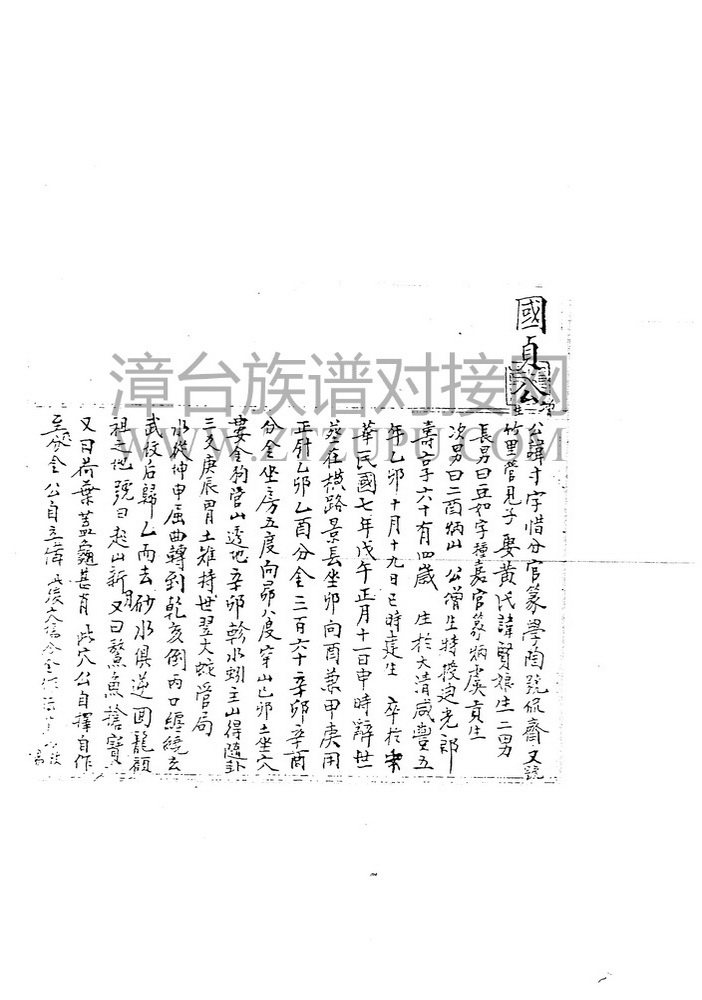 國貞公
公諱 字惜分官篆學陶號侃齋又號
竹里管見子 娶黃氏諱賢娘生二男
長男曰豆如字種嘉官篆炳虞貢生
次男曰二酉炳山 公增生特授迪光郎
壽享六十有四歲 生於大清咸豐五
年乙卯十月十九日巳時建生 卒於
華民國七年戊午正月十一日申時辭世
葬在橫路景長坐卯向酉兼甲庚用
正針乙卯乙酉分金三百六十辛卯辛酉
分金坐房五度向昴八度穿山己卯土坐穴
婁金狗管山透地辛卯 水蚓主山得隨卦
三爻庚辰胃土雉持世翌火蛇管局
水從坤申屈曲轉到乾亥倒丙口纏繞玄
武紋后歸乙丙去砂水俱逆回龍顧
祖之地號曰赵山新月又曰鰲魚搶寶
又曰荷葉蓋龜甚肖 此穴公自擇自作
至分金公自立
漳台族谱对接网
WWW.ZTZUPU.COM